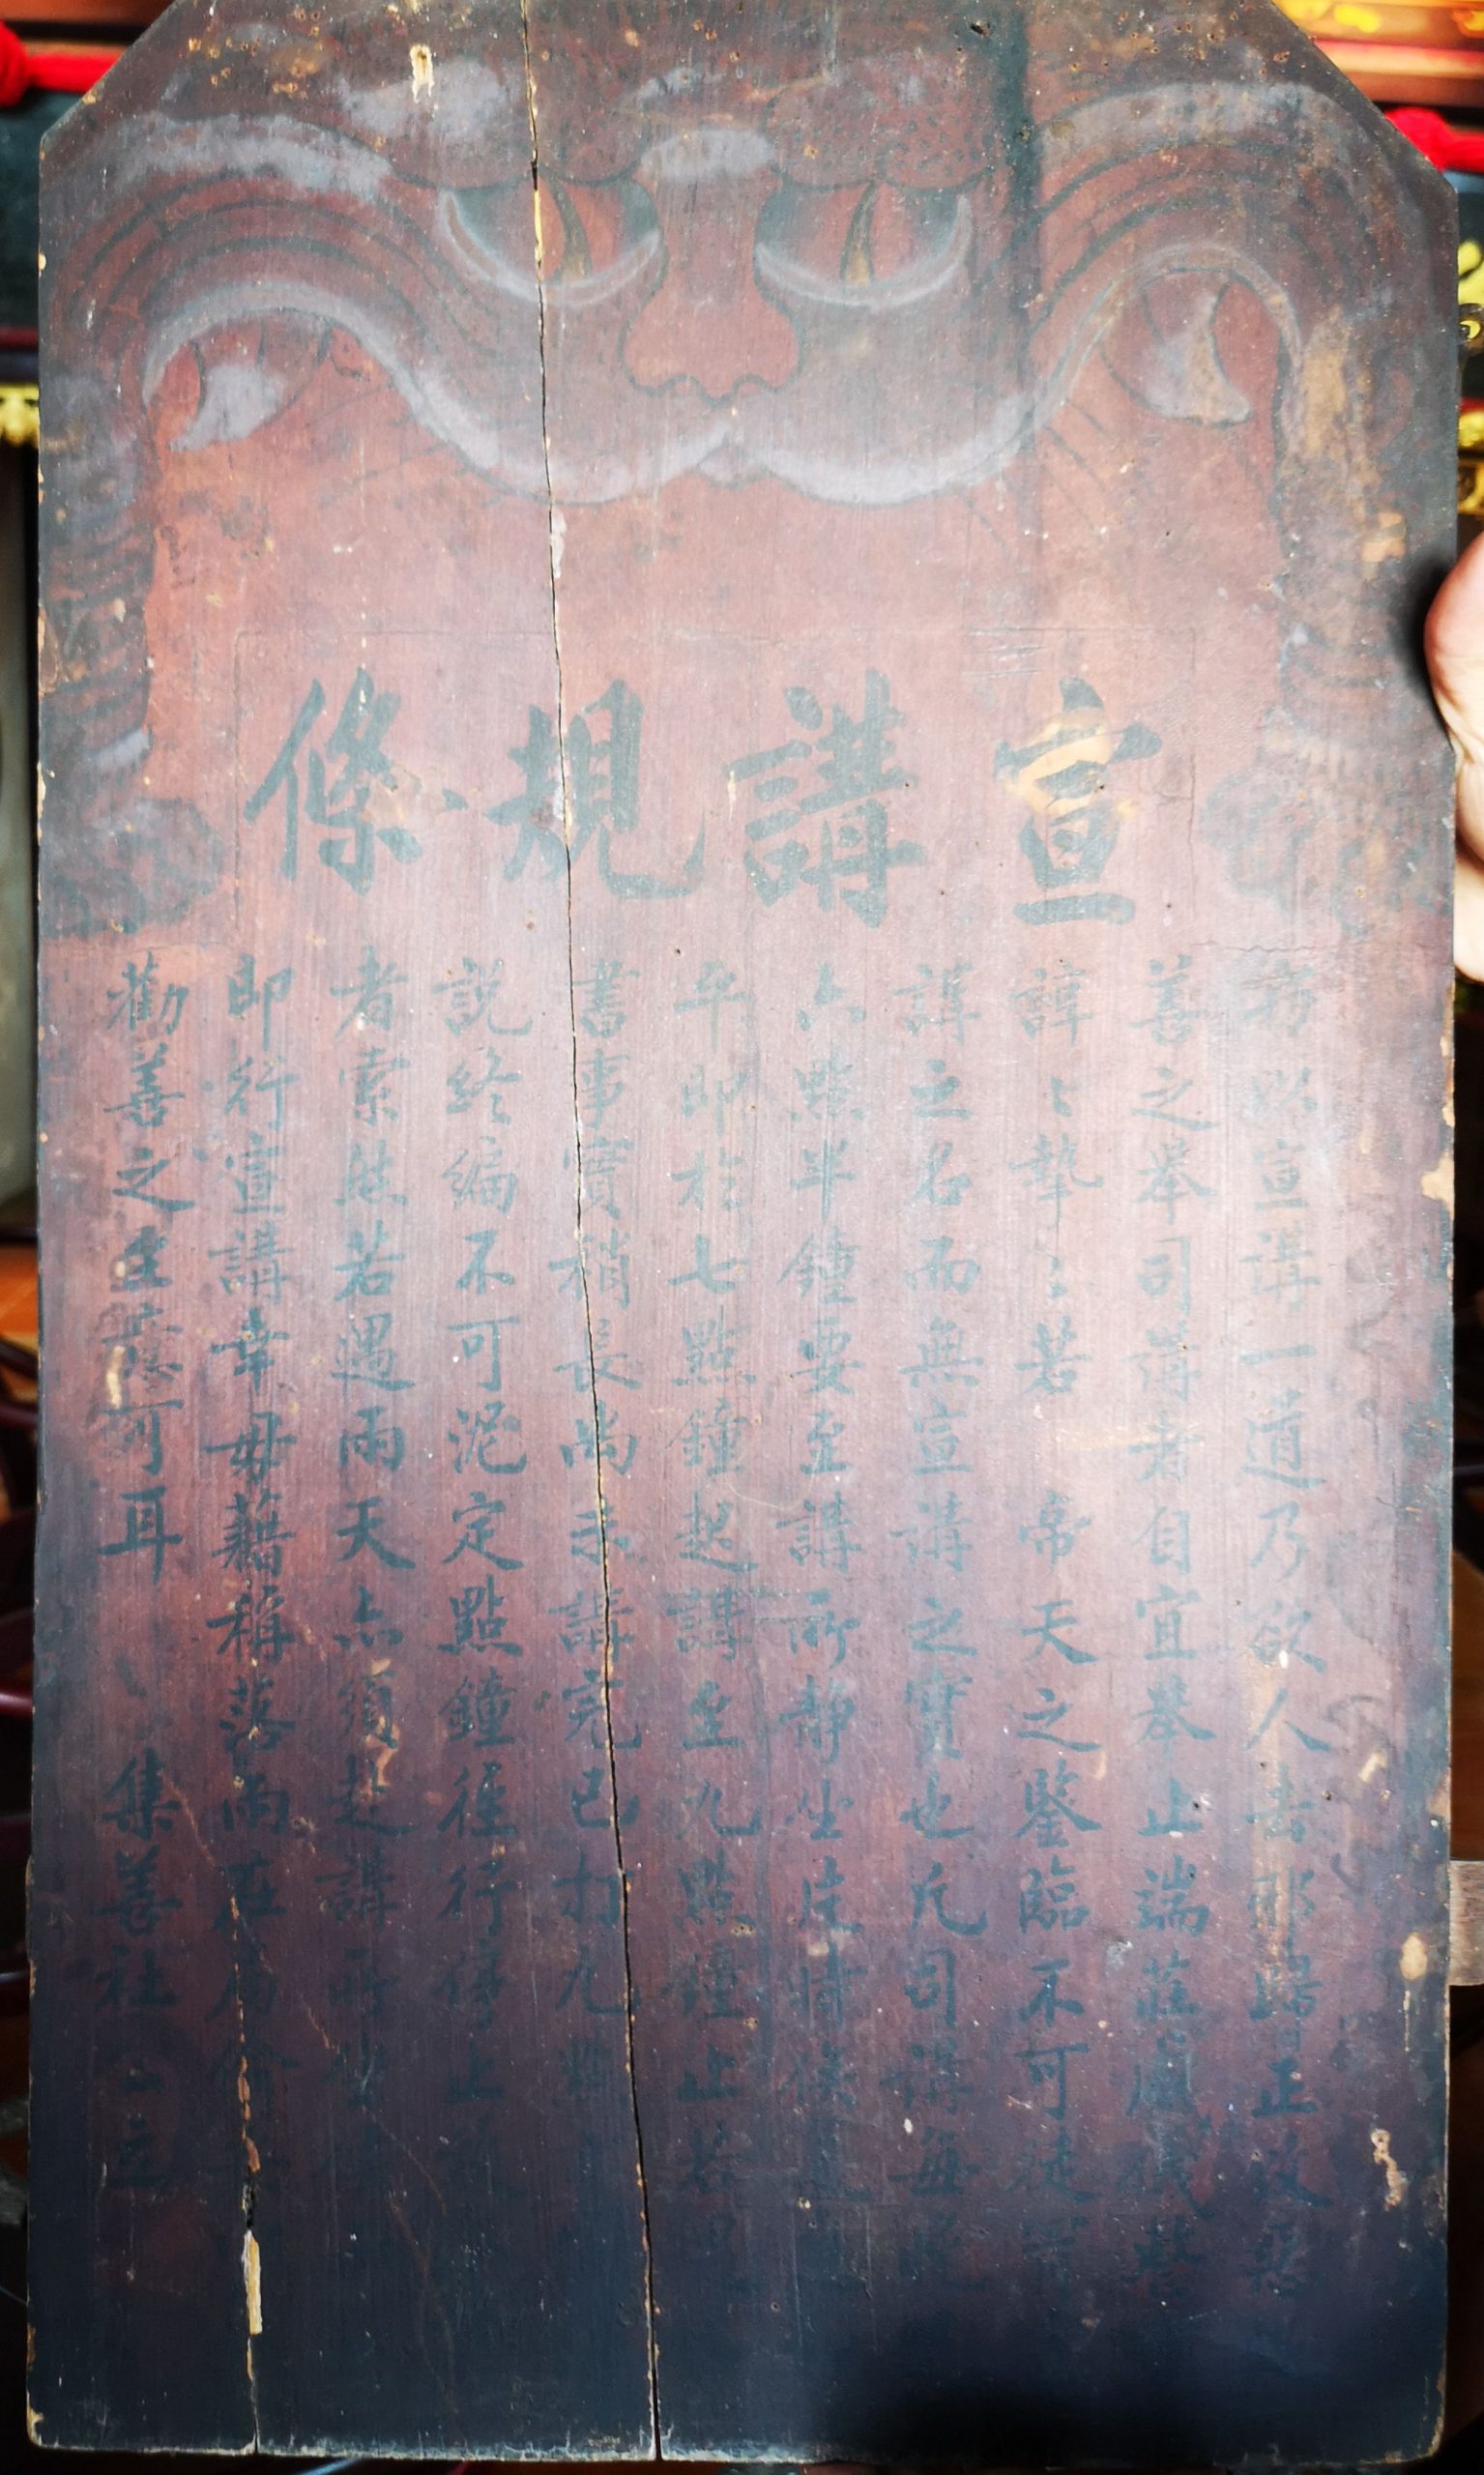 宣講規條
宣講一道乃欲人去邪歸正改惡
善之舉司講者自宜舉止端莊威儀
諄〻摯〻若 帝天之鑒臨不可徒
講之名而無宣講之實也凡司講每
六點半鐘要至講所靜坐片時
平即於七點鐘起講至九點鐘止若
書事實稍長尚未講完已打九
說終編不可泥定點鐘徑行停止
者索然若遇雨天亦須赴講所
即行宣講幸毋藉稱落雨
勸善之至意可耳 集善社